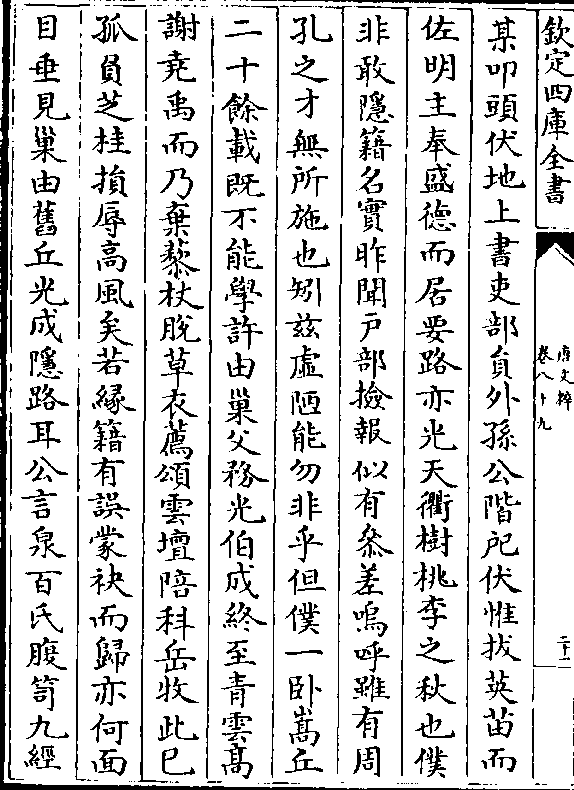 欽定四庫全書
唐文粹
卷八十九
二十一
某叩頭伏地上書吏部貟外孫公階戺伏惟拔英苗而
佐明主奉盛德而居要路亦光天衢樹桃李之秋也僕
非敢隱籍名實昨聞戸部撿報似有叅差嗚呼雖有周
孔之才無所施也矧兹虛陋能勿非乎但僕一卧嵩丘
二十餘載既不能學許由巢父務光伯成終至青雲髙
謝堯禹而乃棄藜杖脫草衣薦頌雲壇陪科岳牧此已
孤員芝桂損辱高風矣若緣籍有誤蒙袂而歸亦何面
目垂見巢由舊丘光成隱路耳公言泉百氏腹笥九經